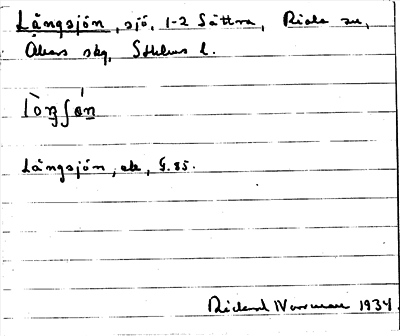 Långsjön, sjö, 1-2 Sättra, Riala sn,
Åkers skg, Sthlms l.
Långsjön, ek, G.85.
Rickard Norrman 1934